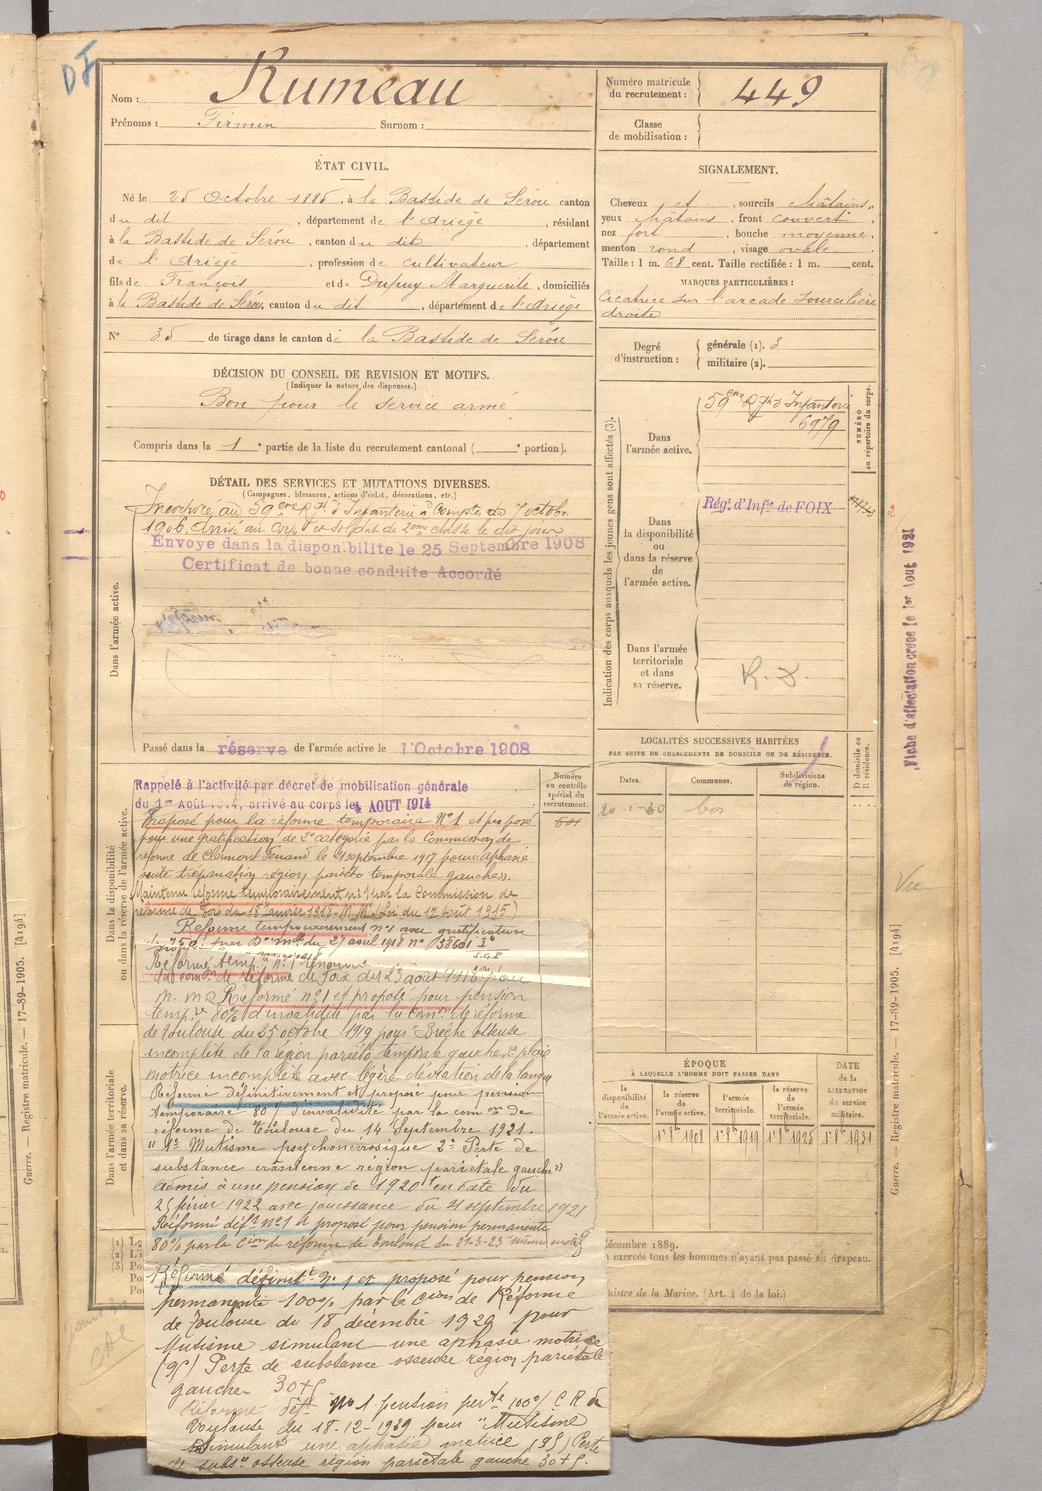 DF
Nom : Rumeau
Prénoms : Firmin Surnom :
Numéro matricule du recrutement : 449
Classe de mobilisation :
ÉTAT CIVIL.
Né le 25 Octobre 1885, à la Bastide de Sérou canton
du dit, département de l'Ariège, résidant
à la Bastide de Sérou, canton du dit, département
de l'Ariège, profession de cultivateur
fils de François et de Dupuy Marguerite, domiciliés
à la Bastide de Sérou, canton du dit, département de l'Ariège
N° 35 de tirage dans le canton de la Bastide de Sérou
DÉCISION DU CONSEIL DE REVISION ET MOTIFS.
(Indiquer la nature des dispenses.)
Bon pour le service armé
Compris dans la 1e partie de la liste du recrutement cantonal ( e portion).
SIGNALEMENT.
Cheveux et, sourcils châtains,
yeux châtains, front couvert,
nez fort, bouche moyenne,
menton rond, visage ovale
Taille : 1 m. 68 cent. Taille rectifiée : 1 m. cent.
MARQUES PARTICULIÈRES :
Cicatrice sur l'arcade sourcilière
droite
Degré d'instruction : générale (1). 3
militaire (2).
DÉTAIL DES SERVICES ET MUTATIONS DIVERSES.
(Campagnes, blessures, actions d'éclat, décorations, etc.)
Dans l'armée active.
Incorporé au 59eme Rgt d'Infanterie à compter du 7 octobre
1906. Arrivé au corps et soldat de 2eme classe le dit jour
Envoye dans la disponibilite le 25 Septembre 1908
Certificat de bonne conduite Accordé
Passé dans la réserve de l'armée active le 1 Octobre 1908
Indication des corps auxquels les jeunes gens sont affectés (3).
NUMÉRO au répertoire du corps.
Dans l'armée active.
59eme Rgt d'Infanterie
6979
Dans la disponibilité ou dans la réserve de l'armée active.
Rég. d'Infie de FOIX
Dans l'armée territoriale et dans sa réserve.
Fiche d'affectation créée le 1er Aout 1921
LOCALITÉS SUCCESSIVES HABITÉES
PAR SUITE DE CHANGEMENTS DE DOMICILE OU DE RÉSIDENCE.
Dates. Communes. Subdivisions de région. D domicile ou R résidence.
Vu
Dans la disponibilité ou dans la réserve de l'armée active.
Numéro au contrôle spécial du recrutement.
Rappelé à l'activité par décret de mobilisation générale
du 1er Août 1914, arrivé au corps le 4 AOUT 1914
Proposé pour la réforme temporaire N°1 et proposé
pour une gratification de 2e catégorie par la Commission de
réforme de Clermont Ferrand le 21 septembre 1917 pour aphasie
suite trépanation région pariéto temporale gauche.
Maintenu réformé temporairement n°1 par la Commission de
réforme de Foix du 18 janvier 1918. M. M. (Loi du 17 Août 1915)
Reformé temporairement n°1 avec gratification
Réformé temp. n°1
la comon de réforme de Foix du 23 août 1918 pour
m. m. Réformé n°1 et proposé pour pension
tempre 80% d'invalidité par la Comon de réforme
de Toulouse du 25 octobre 1919 pour Brèche osseuse
incomplète de la région pariéto temporale gauche 2° plaie
motrice incomplète avec légère déviation de la langue
Réformé définitivement et proposé pour pension
temporaire 80% d'invalidité par la comon de
réforme de Toulouse du 14 Septembre 1921.
"1° Mutisme psychonévrosique 2° Perte de
substance crânienne région pariétale gauche"
Admis à une pension de 1920 en date du
25 février 1922 avec jouissance du 21 septembre 1921
Réformé déft n°1 et proposé pour pension permanente
80% par la Cion de réforme de Toulouse du 21-3-23 même motif
Réformé définitt n°1 et proposé pour pension
permanente 100% par la Cion de Réforme
de Toulouse du 18 décembre 1929 pour
Mutisme simulant une aphasie motrice
Perte de substance osseuse région pariétale
gauche 30+5
Réforme déft n°1 pension perte 100% C R de
Toulouse du 18-12-1929 pour "Mutisme
simulant une aphasie motrice (95) Perte
de subst osseuse région pariétale gauche 30+5.
Dans l'armée territoriale et dans sa réserve.
ÉPOQUE
À LAQUELLE L'HOMME DOIT PASSER DANS
la disponibilité de l'armée active.
la réserve de l'armée active.
l'armée territoriale.
la réserve de l'armée territoriale.
DATE de la LIBÉRATION du service militaire.
décembre 1889.
exercés tous les hommes n'ayant pas passé au drapeau.
nistre de la Marine. (Art. 4 de la loi.)
Guerre. — Registre matricule. — 17-89-1905. [4194]
Guerre. — Registre matricule. — 17-89-1905. [4194]